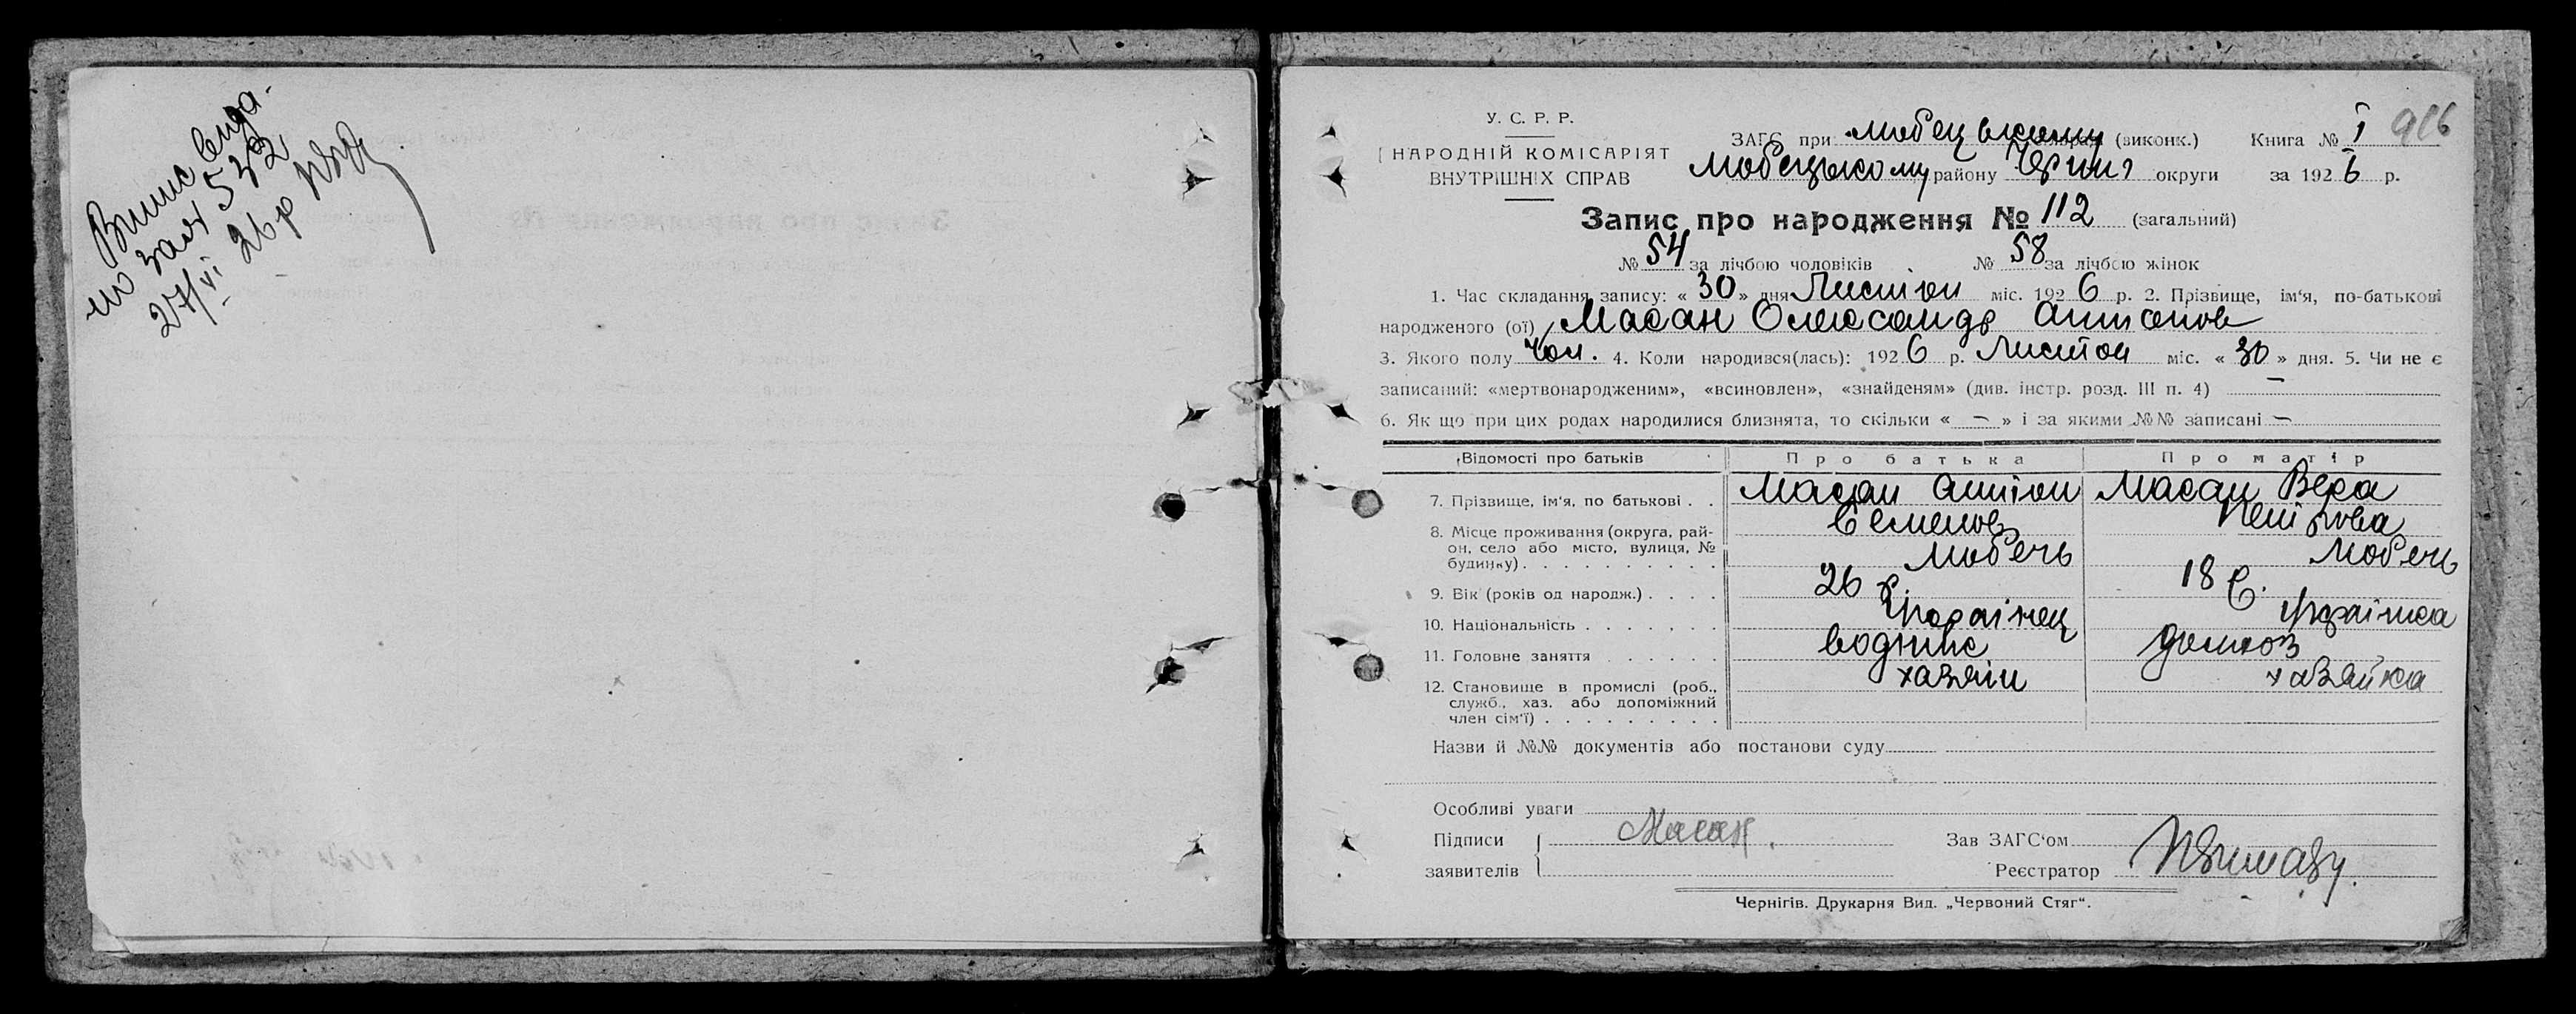 Випис вида-
но за № 532
27/VI 26 р
У. С. Р. Р.
НАРОДНІЙ КОМІСАРІЯТ
ВНУТРІШНІХ СПРАВ
ЗАГС при Любецькому (виконк.) Книга № I 916
Любецькому району Черниг округи за 1926 р.
Запис про народження № 112 (загальний)
№ 54 за лічбою чоловіків № 58 за лічбою жінок
1. Час складання запису: « 30 » дня Листоп міс. 1926 р. 2. Прізвище, ім'я, по-батькові
народженого (ої) Масан Олександр Антонов
3. Якого полу чол. 4. Коли народився(лась): 1926 р. Листоп міс. « 30 » дня. 5. Чи не є
записаний: «мертвонародженим», «всиновлен», «знайденям» (див. інстр. розд. III п. 4) —
6. Як що при цих родах народилися близнята, то скільки « — » і за якими №№ записані —
Відомості про батьків Про батька Про матір
7. Прізвище, ім'я, по батькові . . Масан Антон Масан Вера
Семенов Петрова
8. Місце проживання (округа, рай-
он, село або місто, вулиця, №
будинку) . . . . . . . . . . Любеч Любеч
9. Вік (років од народж.) . . . . 26 р. 18 р.
10. Національність . . . . . . . Українец Українка
11. Головне заняття . . . . . . водник домхоз
12. Становище в промислі (роб., хазяін хазяйка
служб., хаз. або допоміжний
член сім'ї) . . . . . . . . .
Назви й №№ документів або постанови суду
Особливі уваги
Підписи Масан. Зав ЗАГС'ом
заявителів Реєстратор
Чернігів. Друкарня Вид. „Червоний Стяг".